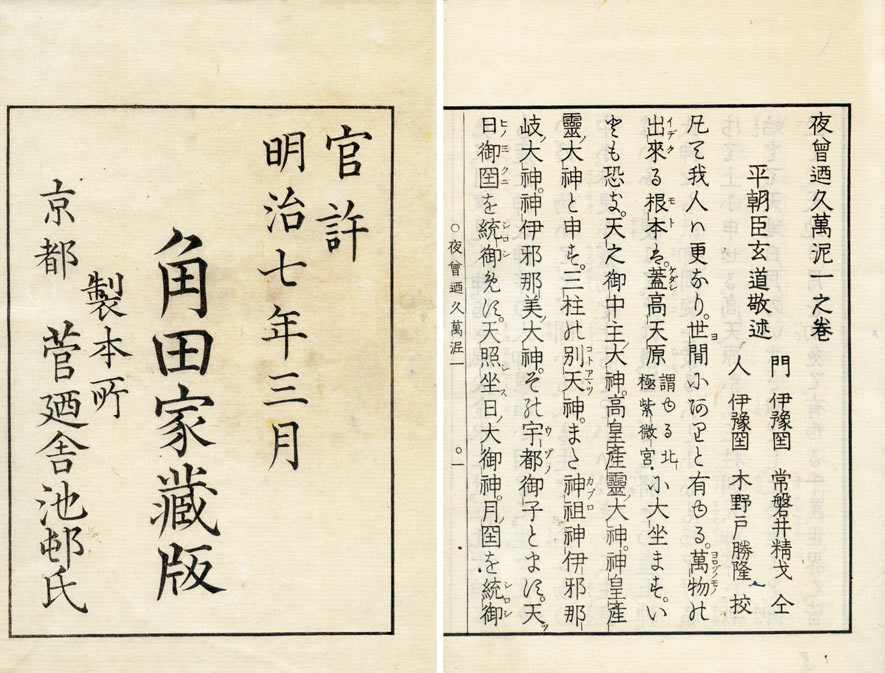 官許
明治七年三月
角田家藏版
製本所
京都 菅廼舎池邨氏
夜曾廼久萬泥一之卷
平朝臣玄道敬述
門 伊豫圀 常磐井精戈 仝
人 伊豫圀 木野戸勝隆 挍
凡て我人ハ更なり。世間にありと有ゆる。萬物の
出來る根本を。蓋高天原 謂ゆる北極紫微宮 に大坐ます。い
とも恐き。天之御中主大神。高皇產靈大神。神皇產
靈大神と申す。三柱の別天神。また神祖神伊邪那
岐大神。神伊邪那美大神。その宇都御子とます。天
日御圀を統御めす。天照坐日大御神。月圀を統御
○夜曾廼久萬泥一
○一